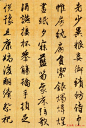 老少異粮妾御績紡侍巾
帷房紈扇圓潔銀燭煒煌
晝眠夕寐藍筍象床弦歌
酒讌接杯舉觴矯手頓足
悅豫且康嫡後嗣續祭祀